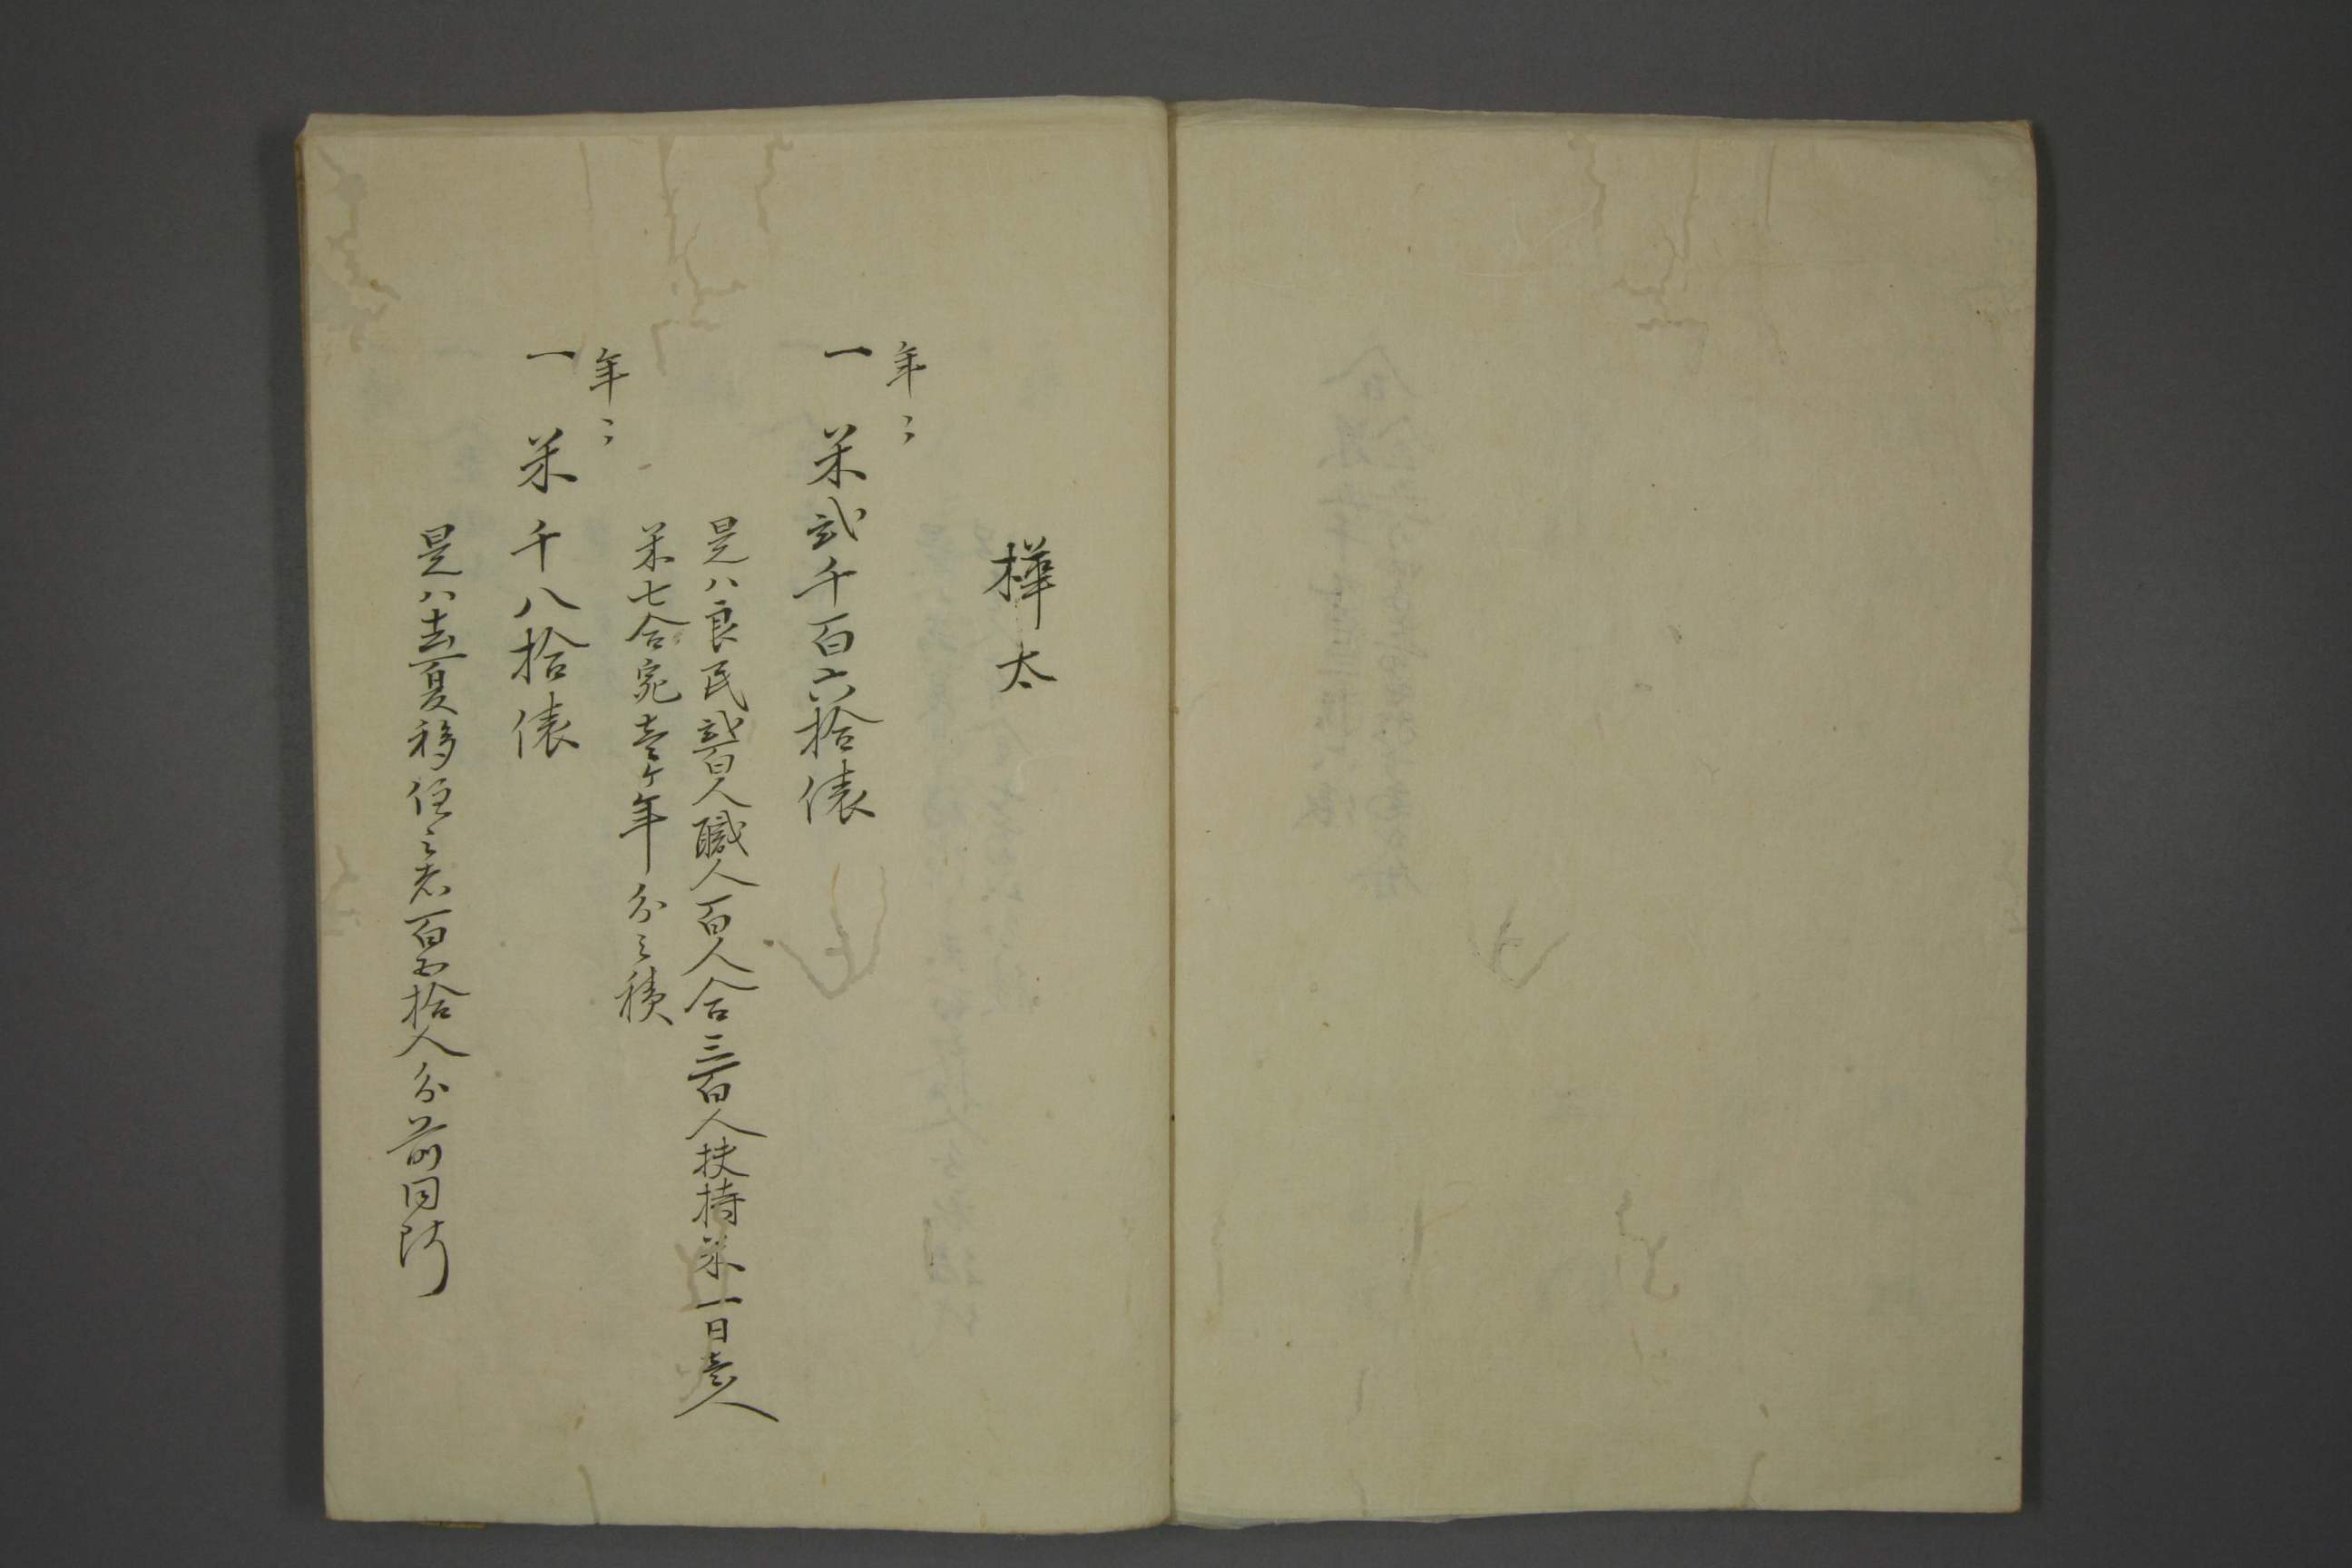 樺太
年〻
一 米弐千百六拾俵
是ハ良民弐百人職人百人合三百人扶持米一日壱人
米七合宛壱ケ年分之積
年〻
一 米千八拾俵
是ハ去夏移住之者百五拾人分前同断